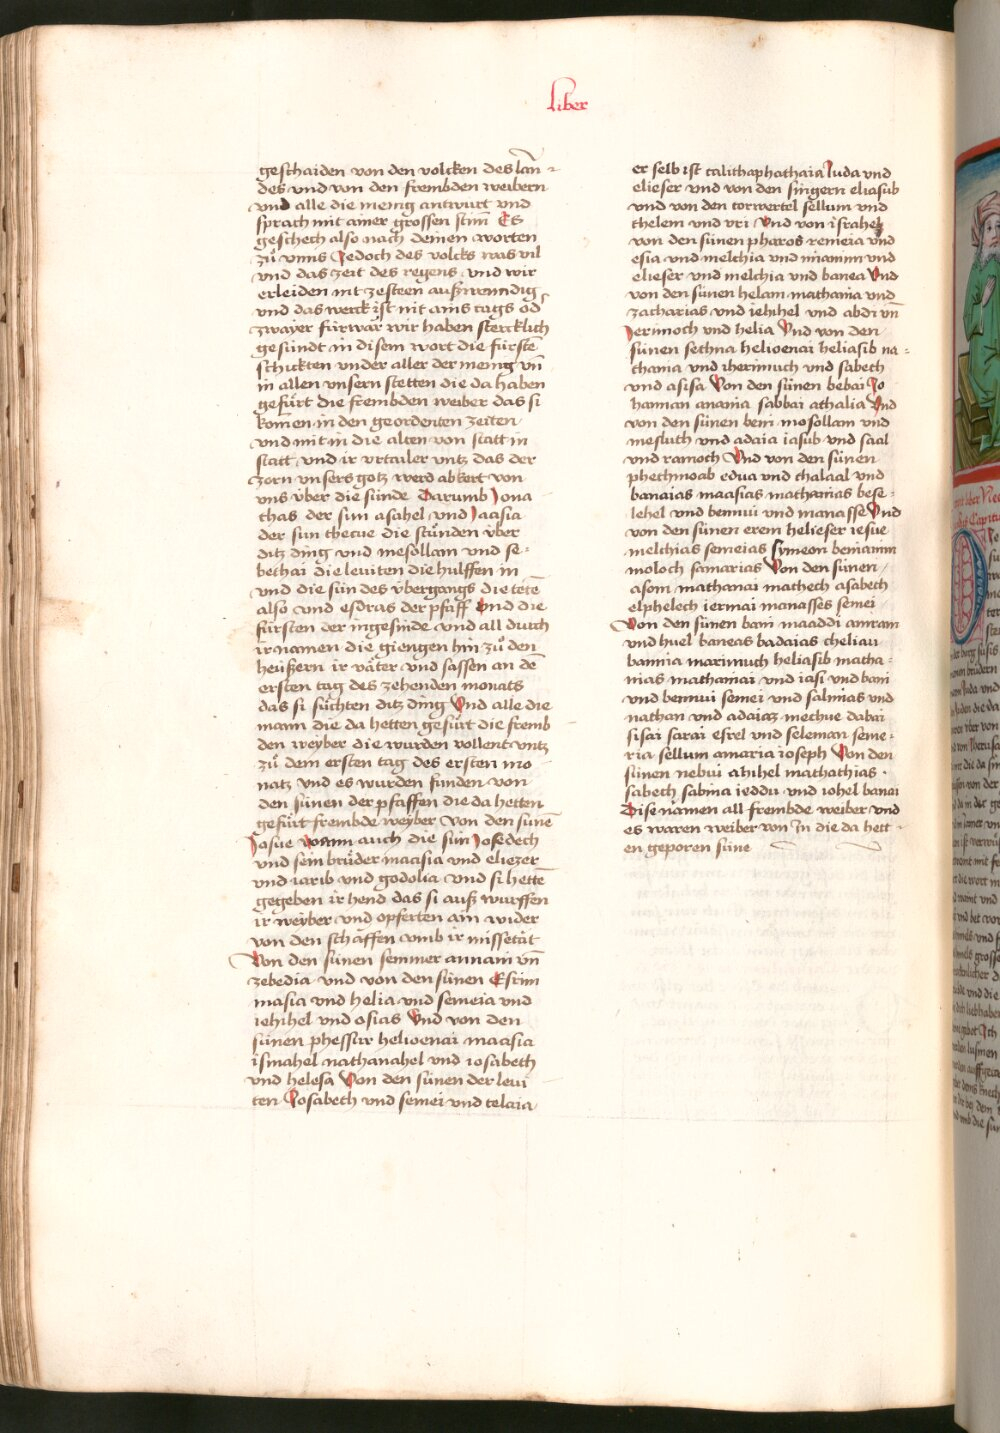 liber
geschaiden von den volcken des lan̄-
des vnd von den frembden weibern
vnd alle die menig antwurt vnd
sprach mit ainer grossen stim̄ Es
geschech also nach deinen worten
zů vnns Jedoch des volcks was vil
vnd das zeit des regens vnd wir
erleiden nit ze steen außwendig
vnd das werck ist nit ains tags od͛
zwayer fürwar wir haben stercklich
gesündt in disem wort die fürstē
schickten vnder aller der menig vn̄
in allen vnsern stetten die da haben
gefürt die frembden weiber das si
komen in den geordenten zeiten
vnd mit in die alten von statt in
statt vnd ir vrtailer vntz das der
zorn vnsers gotz werd abkert von
vns über die sünde Darumb Jona
thas der sun asahel vnd Jaasia
der sun thecue die stůnden über
ditz ding vnd mesollam vnd se-
bethai die leuiten die hulffen in
vnd die sün des übergangs die tetē
also vnd esdras der pfaff vnd die
fürsten der ingesinde vnd all durch
ir namen die giengen hin zů den
heüßern ir väter vnd sassen an dē
ersten tag des zehenden monats
das si sůchten ditz ding Vnd alle die
mann die da hetten gefürt die fremb
den weyber die wurden vollent vntz
zů dem ersten tag des ersten mo
natz vnd es wurden funden von
den sünen der pfaffen die da hetten
gefürt frembde weyber Von den sünē
Josue wann auch die sün Josedech
vnd sein brüder maasia vnd eliezer
vnd iarib vnd godolia vnd si hettē
gegeben ir hend das si auß wurffen
ir weyber vnd opferten ain wider
von den schaffen vmb ir missetat
Von den sünen semmer annam vn̄
zebedia vnd von den sünen Esrim
masia vnd helia vnd semeia vnd
iehihel vnd osias Vnd von den
sünen phessur helioenai maasia
ismahel nathanahel vnd iosabeth
vnd helesa Von den sünen der leui
ten Josabeth vnd semei vnd telaia
er selb ist calithaphathaia Juda vnd
elieser vnd von den singern eliasub
vnd von den torwertel sellum vnd
thelem vnd vri Vnd von israhel
von den sünen pharos remeia vnd
esia vnd melchia vnd miamim vnd
elieser vnd melchia vnd banea Vnd
von den sünen helam mathania vnd
zacharias vnd iehihel vnd abdi vn̄
Jerimoch vnd helia Vnd von den
sünen sethna helioenai heliasib na-
thania vnd iherimuch vnd sabeth
vnd asisa Von den sünen bebai Jo
hannan anania sabbai athalia Vnd
von den sünen beni mosollam vnd
mesluth vnd adaia iasub vnd saal
vnd ramoch Vnd von den sünen
phethmoab edua vnd thalaal vnd
banaias maasias mathanias bese-
lehel vnd bennui vnd manasse Vnd
von den sünen erem helieser iesue
melchias semeias Symeon beniamin
moloch samarias Von den sünen
asom mathanai mathech asabeth
elphelech iermai manasses semei
Von den sünen bani maaddi amram
vnd huel baneas badaias cheliau
bannia marimuch heliasib matha-
nias mathamai vnd iasi vnd bani
vnd bennui semei vnd salmias vnd
nathan vnd adaiaz mechue dabai
sisai sarai esrel vnd seleman seme-
ria sellum amaria ioseph Von den
sünen nebui ahihel mathathias
sabeth sabina ieddu vnd iohel banai
Dise namen all frembde weiber vnd
es waren weiber von In die da hett-
en geporen süne